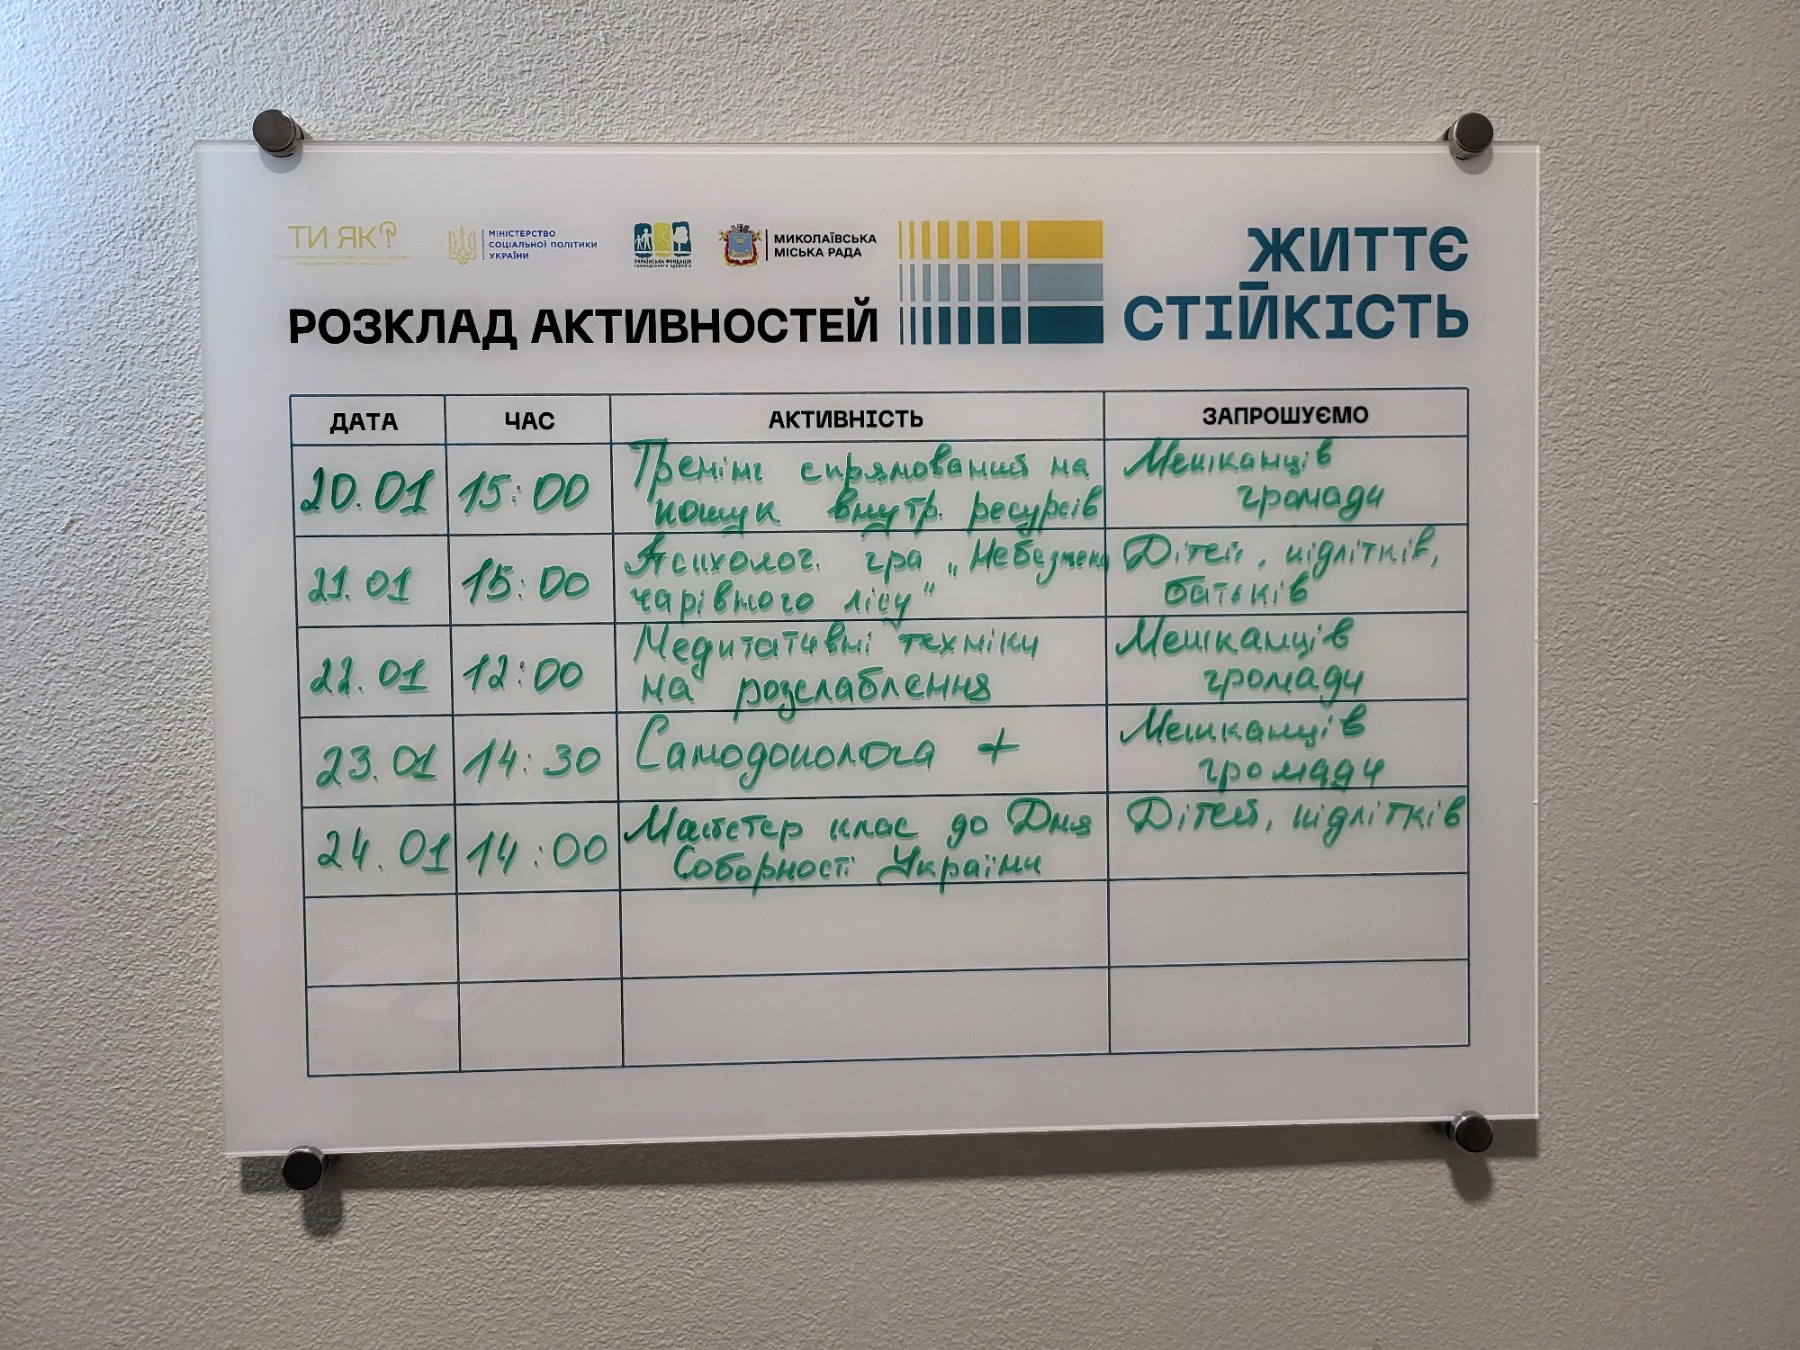 ТИ ЯК?
МІНІСТЕРСТВО
СОЦІАЛЬНОЇ ПОЛІТИКИ
УКРАЇНИ
УКРАЇНСЬКА ФУНДАЦІЯ
ГРОМАДСЬКОГО ЗДОРОВ'Я
МИКОЛАЇВСЬКА
МІСЬКА РАДА
ЖИТТЄ
СТІЙКІСТЬ
РОЗКЛАД АКТИВНОСТЕЙ
ДАТА ЧАС АКТИВНІСТЬ ЗАПРОШУЄМО
20.01 15:00 Тренінг спрямований на Мешканців
пошук внутр. ресурсів громади
21.01 15:00 Психолог. гра „ Дітей, підлітків,
чарівного лісу" батьків
22.01 12:00 Медитативні техніки Мешканців
на розслаблення громади
23.01 14:30 Самодопомога + Мешканців
громади
24.01 14:00 Майстер клас до Дня Дітей, підлітків
Соборності України